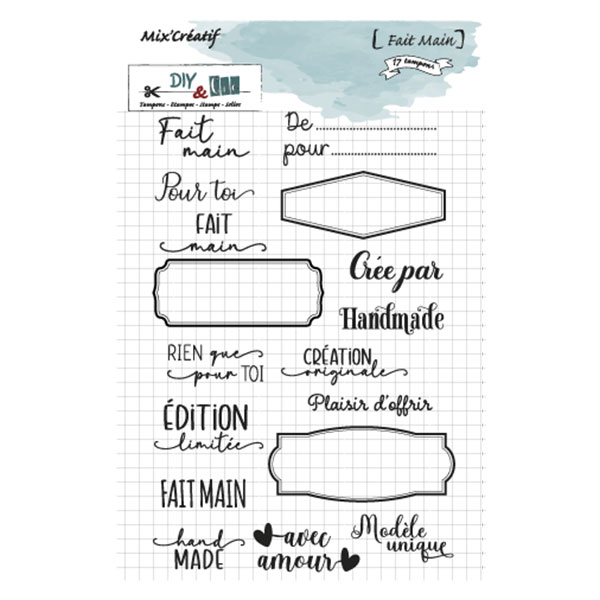 Mix'Créatif
[ Fait Main ]
17 tampons
DIY
& Cie
Tampons - Stampos - Stamps - Sellos
Fait
main
De
pour
Pour toi
FAIT
main
Crée par
Handmade
RIEN que
pour TOI
CRÉATION
originale
Plaisir d'offrir
ÉDITION
limitée
FAIT MAIN
hand
MADE
avec
amour
Modèle
unique